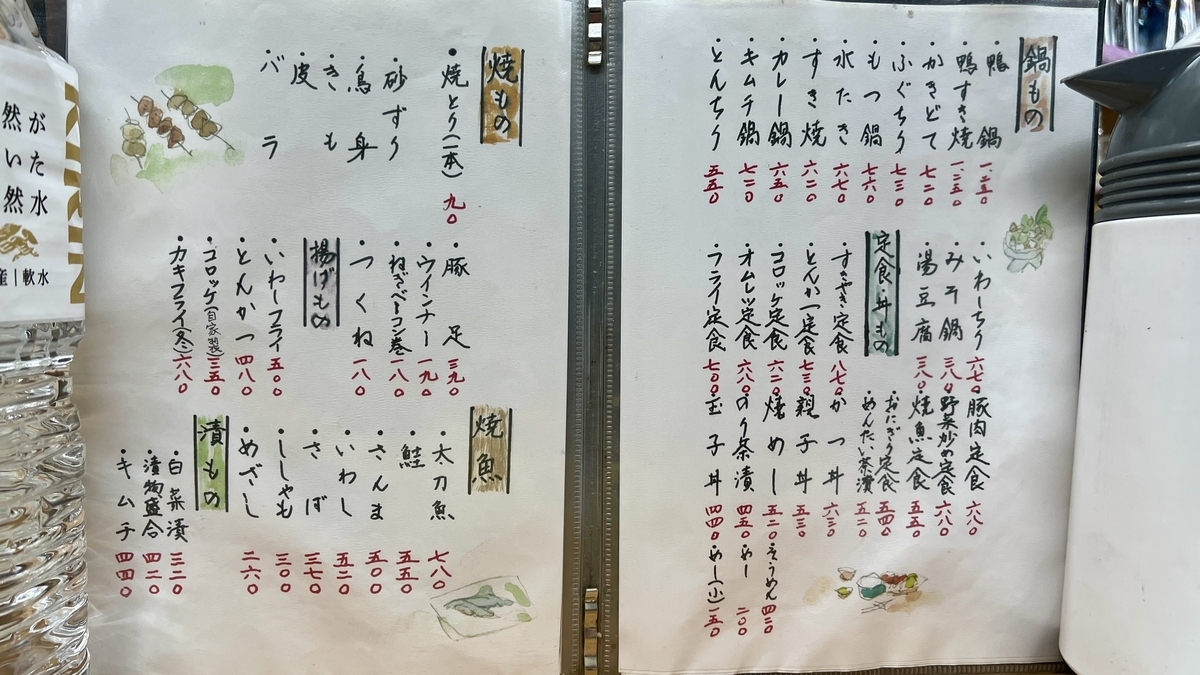 鍋もの
・鴨鍋 一、二五〇
・鴨すき焼 一、二五〇
・かきどて 七二〇
・ふぐちり 七三〇
・もつ鍋 七六〇
・水たき 六七〇
・すき焼 六二〇
・カレー鍋 六五〇
・キムチ鍋 七二〇
・とんちり 五五〇
・いわしちり 六七〇
・みそ鍋 三八〇
・湯豆腐 三八〇
定食・丼もの
・すきやき定食 八七〇
・とんかつ定食 七三〇
・コロッケ定食 六二〇
・オムレツ定食 六八〇
・フライ定食 七〇〇
豚肉定食 六八〇
・野菜炒め定食 六八〇
・焼魚定食 五五〇
・おにぎり定食 五四〇
・めんたい茶漬 五二〇
・かつ丼 六三〇
・親子丼 五三〇
・焼めし 五二〇
・のり茶漬 四五〇
・玉子丼 四四〇
・そうめん 四二〇
・めし 二〇〇
・めし(小) 一五〇
焼もの
・焼とり(一本) 九〇
・砂ずり
・鳥身
・きも
・皮
・バラ
・豚足 三九〇
・ウインナー 一九〇
・ねぎベーコン巻 一八〇
・つくね 一八〇
揚げもの
・いわしフライ 五〇〇
・とんかつ 四八〇
・コロッケ(自家製) 三五〇
・カキフライ(冬) 六八〇
焼魚
・太刀魚 七八〇
・鮭 五五〇
・さんま 五〇〇
・いわし 五二〇
・さば 三七〇
・ししゃも 三〇〇
・めざし 二六〇
漬もの
・白菜漬 三二〇
・漬物盛合 四二〇
・キムチ 四四〇
KIRIN
がた水
然い然
産|軟水